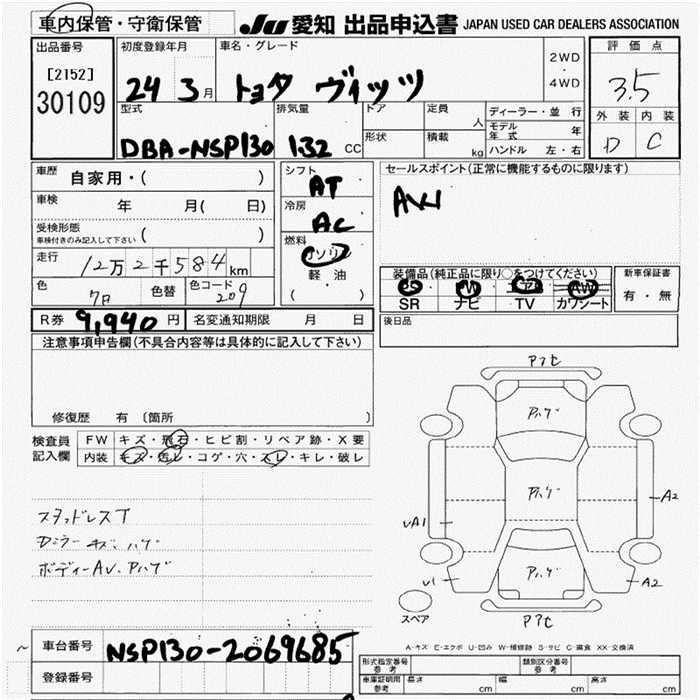 車内保管・守衛保管 JU 愛知 出品申込書 JAPAN USED CAR DEALERS ASSOCIATION
出品番号 初度登録年月 車名・グレード 2WD・4WD 評価点
[2152] 24 3月 トヨタ ヴィッツ 3.5
30109 型式 排気量 ドア 定員 人 ディーラー・並行 外装 内装
DBA-NSP130 132 CC 形状 積載 kg モデル年式 年 D C
ハンドル 左・右
車歴 自家用・( ) シフト AT セールスポイント(正常に機能するものに限ります)
車検 年 月( 日) 冷房 AC AW
受検形態 ( )
車検付きのみ記入して下さい
燃料 ガソリン
走行 12万2千584km 軽油 装備品(純正品に限り○をつけてください) 新車保証書
色 クロ 色替 色コード 209 ( ) PS PW AW 有・無
SR ナビ TV カワシート
R券 9,940円 名変通知期限 月 日 後日品
注意事項申告欄(不具合内容等は具体的に記入して下さい)
修復歴 有 〔箇所
検査員記入欄 FW キズ・飛石・ヒビ割・リペア跡・X要
内装 キズ・汚レ・コゲ・穴・スレ・キレ・破レ
スタッドレスT
Dミラー キズ、ハゲ
ボディーAU、Pハゲ
Pハゲ
Pハゲ
Pハゲ
A2
A2
U1
スペア
A-キズ E-エクボ U-凹み W-補修跡 S-サビ C-腐食 XX-交換済
車台番号 NSP130-2069685
登録番号
形式指定番号 参考 類別区分番号 参考
車庫証明用 参考 長さ cm 幅 cm 高さ cm